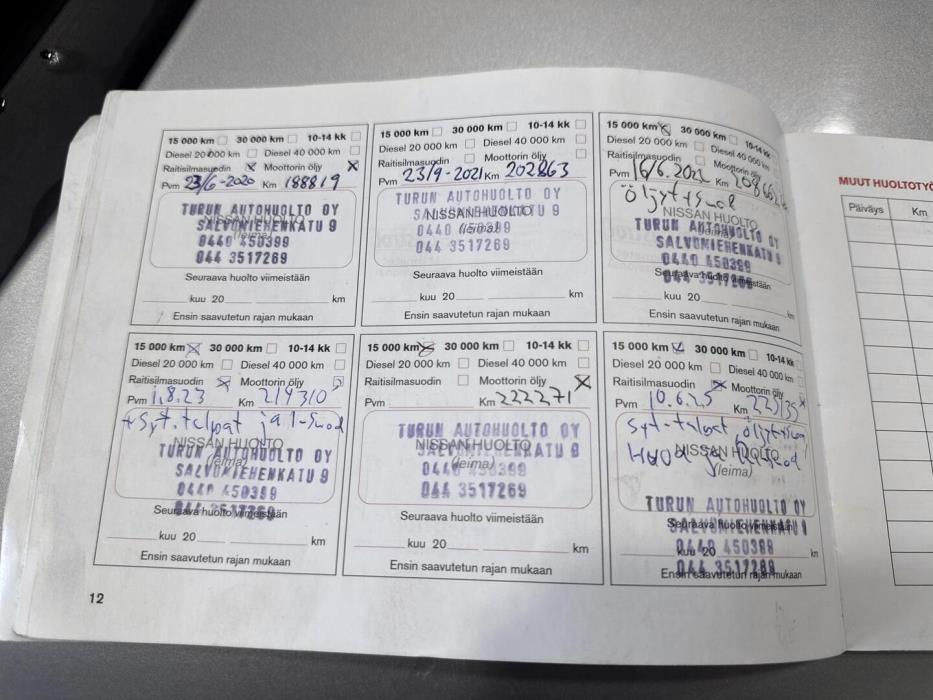 15 000 km 30 000 km 10-14 kk
Diesel 20 000 km Diesel 40 000 km
Raitisilmasuodin Moottorin öljy
Pvm 23/6-2020 Km 188819
NISSAN HUOLTO
(leima)
TURUN AUTOHUOLTO OY
SALVUMIEHENKATU 9
0440 450399
044 3517269
Seuraava huolto viimeistään
kuu 20 km
Ensin saavutetun rajan mukaan
15 000 km 30 000 km 10-14 kk
Diesel 20 000 km Diesel 40 000 km
Raitisilmasuodin Moottorin öljy
Pvm 23/9-2021 Km 202863
TURUN AUTOHUOLTO OY
NISSAN HUOLTO
SALVUMIEHENKATU 9
(leima)
0440 450399
044 3517269
Seuraava huolto viimeistään
kuu 20 km
Ensin saavutetun rajan mukaan
15 000 km 30 000 km 10-14 kk
Diesel 20 000 km Diesel 40 000 km
Raitisilmasuodin Moottorin öljy
Pvm 16/6.2022 Km
öljyt+suod
NISSAN HUOLTO
TURUN AUTOHUOLTO OY
(leima)
SALVUMIEHENKATU 9
0440 450399
044 3517269
Seuraava huolto viimeistään
kuu 20 km
Ensin saavutetun rajan mukaan
15 000 km 30 000 km 10-14 kk
Diesel 20 000 km Diesel 40 000 km
Raitisilmasuodin Moottorin öljy
Pvm 1.8.23 Km 214310
+syt.tulpat ja
NISSAN HUOLTO
TURUN AUTOHUOLTO OY
(leima)
SALVUMIEHENKATU 9
0440 450399
044 3517269
Seuraava huolto viimeistään
kuu 20 km
Ensin saavutetun rajan mukaan
15 000 km 30 000 km 10-14 kk
Diesel 20 000 km Diesel 40 000 km
Raitisilmasuodin Moottorin öljy
Pvm Km 222271
TURUN AUTOHUOLTO OY
NISSAN HUOLTO
SALVUMIEHENKATU 9
(leima)
0440 450399
044 3517269
Seuraava huolto viimeistään
kuu 20 km
Ensin saavutetun rajan mukaan
15 000 km 30 000 km 10-14 kk
Diesel 20 000 km Diesel 40 000 km
Raitisilmasuodin Moottorin öljy
Pvm 10.6.25 Km
syt-tulpat
NISSAN HUOLTO
(leima)
TURUN AUTOHUOLTO OY
Seuraava huolto viimeistään
SALVUMIEHENKATU 9
kuu 20 km
0440 450399
044 3517269
Ensin saavutetun rajan mukaan
12
MUUT HUOLTOTYÖ
Päiväys Km